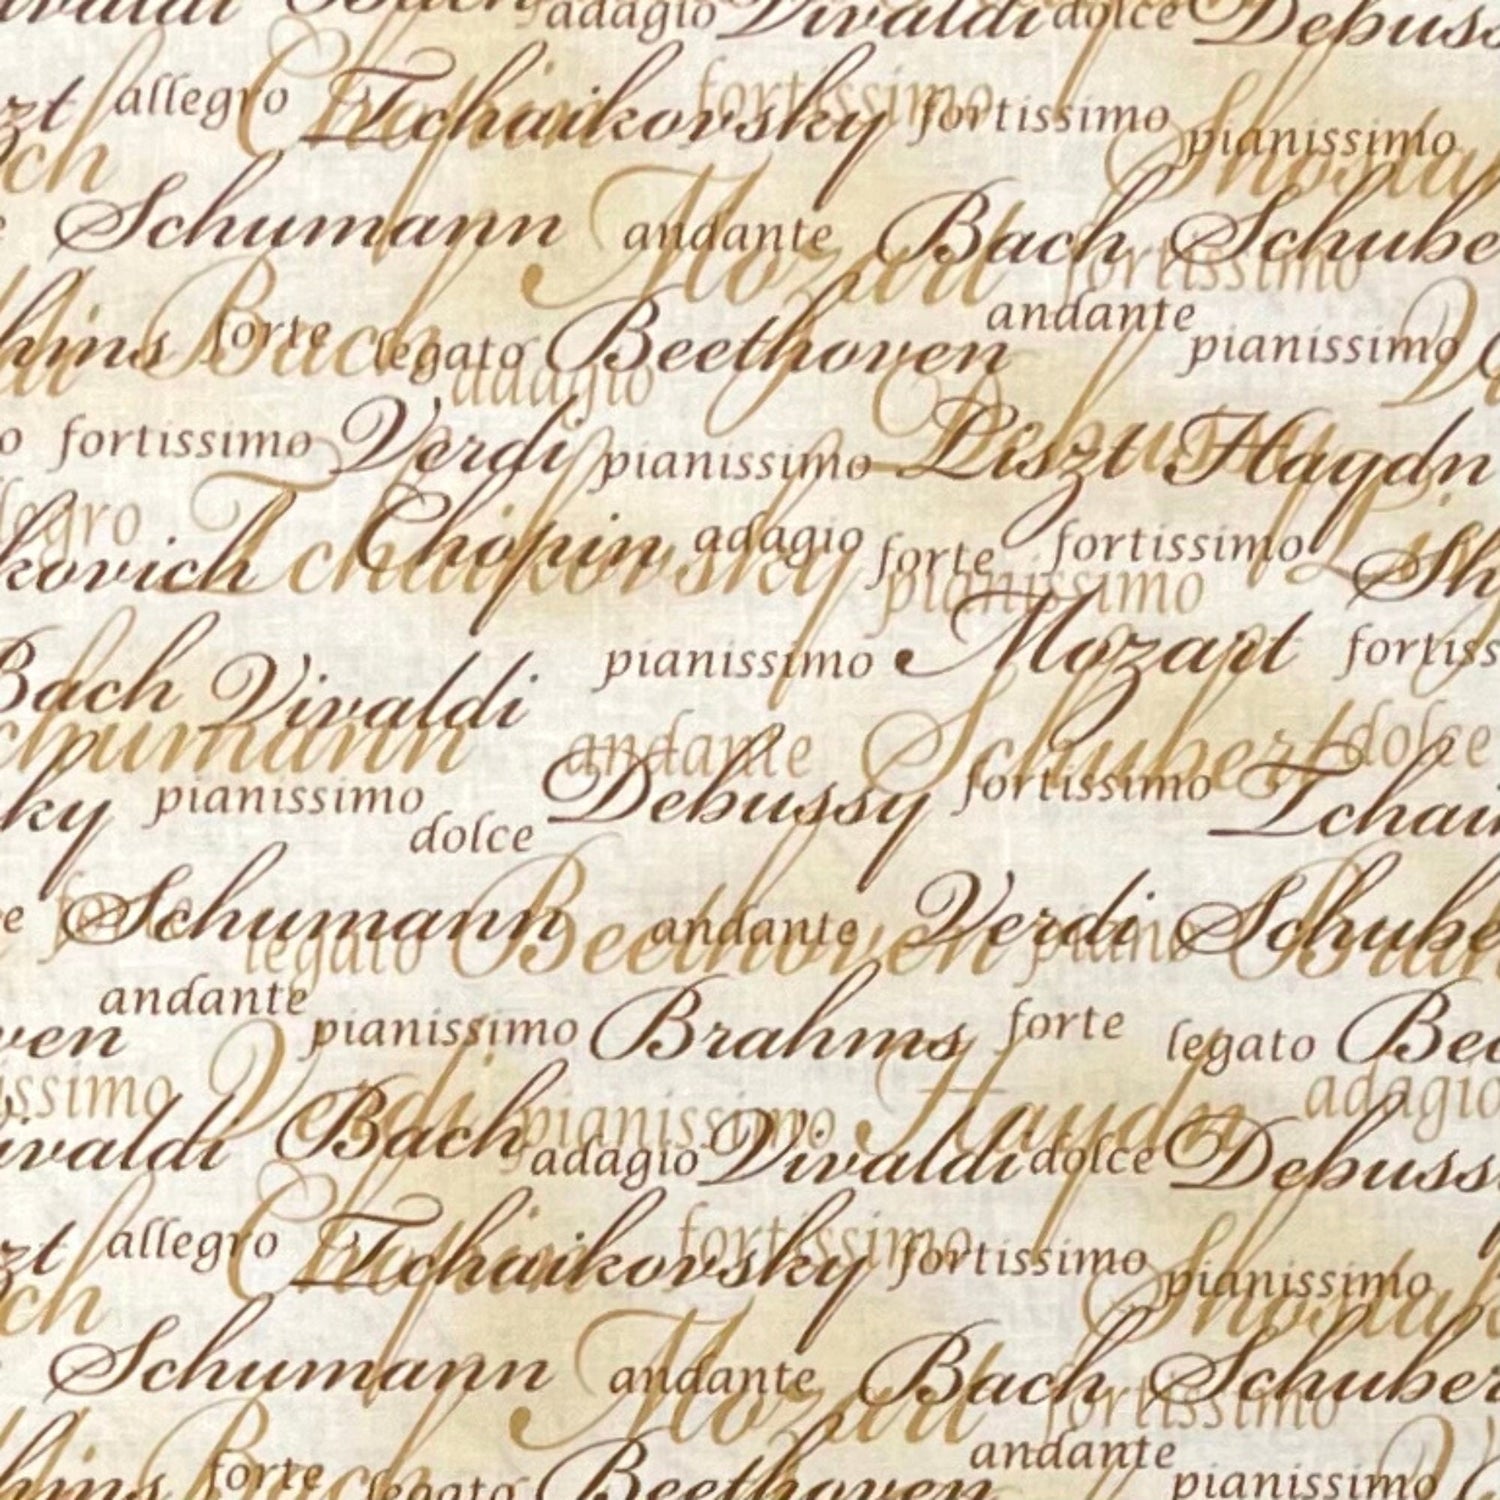 Vivaldi Bach adagio Vivaldi dolce Debuss
zt allegro Chopin Tchaikovsky fortissimo fortissimo pianissimo
ch Shostak
Schumann andante Mozart Bach Schube
fortissimo
andante
hms Bach forte legato Beethoven pianissimo
adagio
o fortissimo Verdi pianissimo Debussy Liszt Haydn
llegro
kovich Tchaikovsky Chopin adagio forte fortissimo Sh
pianissimo
pianissimo Mozart fortiss
Bach Vivaldi
chumann andante Schubert dolce
ky pianissimo Debussy fortissimo Tchai
dolce
e Schumann andante Verdi piano Schube
legato Beethoven
andante
ven pianissimo Brahms forte legato Bee
issimo Verdi pianissimo Haydn adagio
ivaldi Bach adagio Vivaldi dolce Debuss
zt allegro Chopin Tchaikovsky fortissimo fortissimo pianissimo
ch Shostak
Schumann andante Mozart Bach Schuber
fortissimo
andante
forte Bach legato Beethoven pianissimo